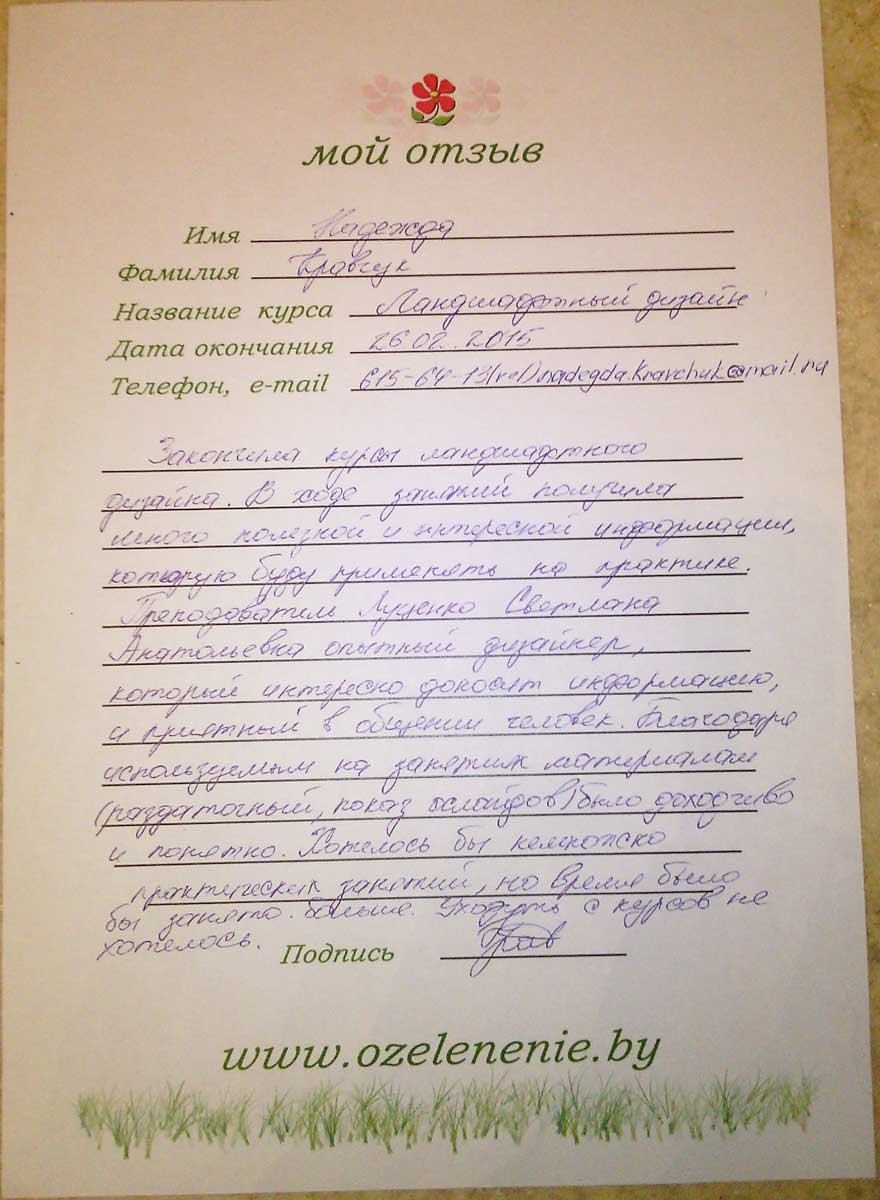 мой отзыв
Имя Надежда
Фамилия Кравчук
Название курса Ландшафтный дизайн
Дата окончания 26.02.2015
Телефон, e-mail 615-64-13(vel) nadegda.kravchuk@mail.ru
Закончила курсы ландшафтного
дизайна. В ходе занятий получила
много полезной и интересной информации,
которую буду применять на практике.
Преподаватель Луценко Светлана
Анатольевна опытный дизайнер,
который интересно доносит информацию,
и приятный в общении человек. Благодаря
используемым на занятиях материалам
(раздаточный, показ слайдов) было доходчиво
и понятно. Хотелось бы немножко
практических занятий, но время было
бы занято больше. Уходить с курсов не
хотелось.
Подпись
www.ozelenenie.by